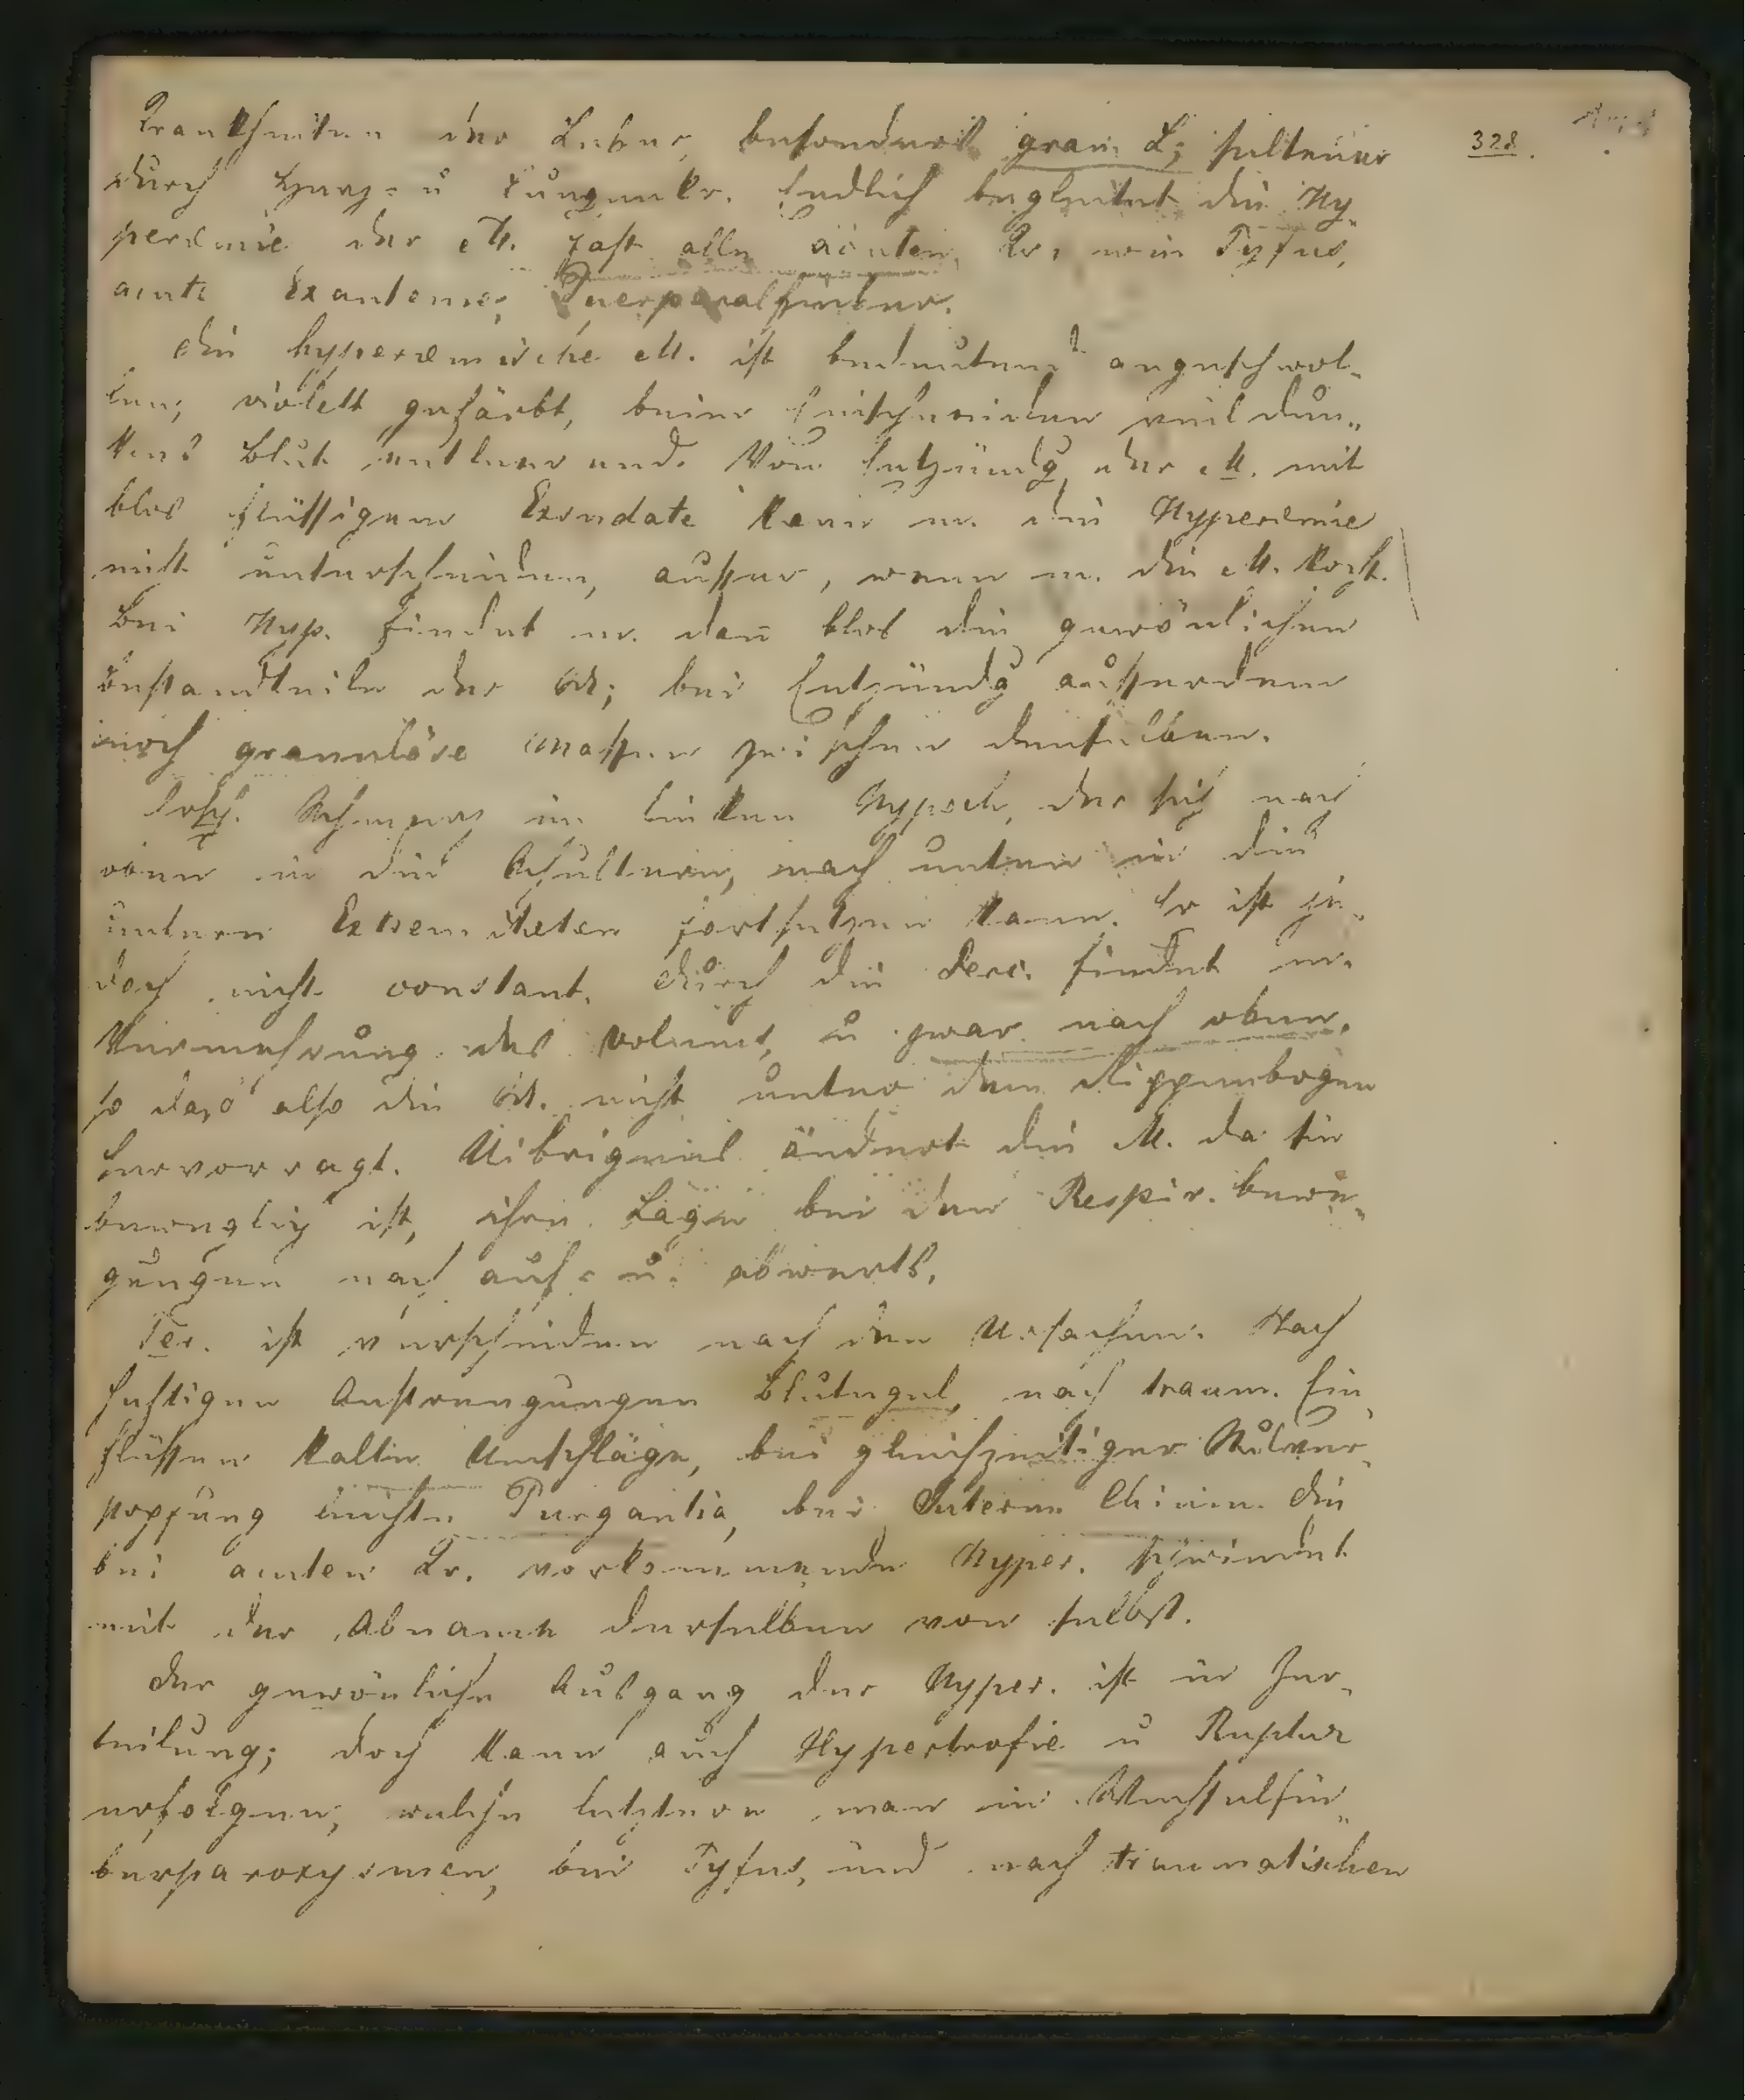 328.
Krankheiten der Leber, besonders gran. L; seltener
durch Herz- u Lungenkr. Endlich begleitet die Hy-
peremie der M. fast alle acuten Kr. wie Tyfus,
acute Exanteme, Puerperalfieber.
Die hyperemische M. ist bedeutend angeschwol-
len, violett gefärbt, beim Einschneiden viel dun-
kles Blut entleerend. Von Entzündg der M. mit
blos flüssigem Exsudate kann m. die Hyperemie
nicht unterscheiden, außer, wenn m. die M. kocht.
Bei Hyp. findet m. dan blos die gewönlichen
Bestandteile der M; bei Entzündg außerdem
noch granulöse Massen zwischen denselben.
Ersch. Schmerz im linken Hypoch, der sich nach
oben in die Schultern, nach unten in die
unteren Extremiteten fortsetzen kann. Er ist je-
doch nicht constant. Durch die Perc. findet m.
Vermehrung des Volums, u zwar nach oben,
so daß also die M. nicht unter dem Rippenbogen
hervorragt. Uibrigens ändert die M. da sie
beweglich ist, ihre Lage bei den Respir. bewe-
gungen nach auf- u. abwerts.
Ter. ist verschieden nach den Ursachen. Nach
heftigen Anstrengungen Blutegel, nach traum. Ein-
flüssen kalte Umschläge, bei gleichzeitiger Stulver-
stopfung leichte Purgantia, bei Interm. Chinin. Die
bei acuten Kr. vorkommende Hyper. schwindet
mit der Abname derselben von selbst.
Der gewönliche Ausgang der Hyper. ist in Zer-
teilung; doch kann auch Hypertrofie u Ruptur
erfolgen, welche letztere man in Wechselfie-
berparoxysmen, bei Tyfus, und nach traumatischen